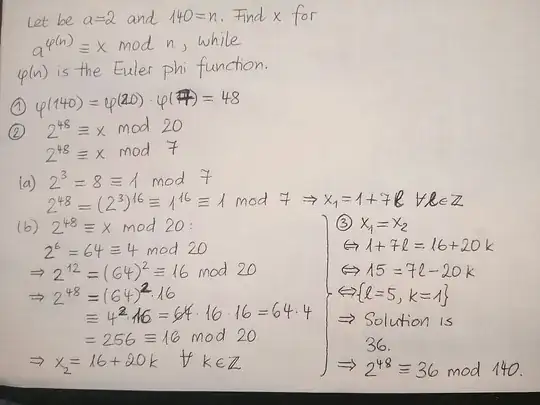 Let be a=2 and 140=n. Find x for
a^φ(n) ≡ x mod n, while
φ(n) is the Euler phi function.
① φ(140) = φ(20) · φ(7) = 48
② 2^48 ≡ x mod 20
2^48 ≡ x mod 7
(a) 2^3 = 8 ≡ 1 mod 7
2^48 = (2^3)^16 ≡ 1^16 ≡ 1 mod 7 ⇒ x_1 = 1+7l ∀l∈ℤ
(b) 2^48 ≡ x mod 20:
2^6 = 64 ≡ 4 mod 20
⇒ 2^12 = (64)^2 ≡ 16 mod 20
⇒ 2^48 = (64)^2 · 16
≡ 4^2 · 16 = 64 · 16 · 16 = 64 · 4
= 256 ≡ 16 mod 20
⇒ x_2 = 16+20k ∀ k∈ℤ
③ x_1 = x_2
⇔ 1+7l = 16+20k
⇔ 15 = 7l-20k
⇔ {l=5, k=1}
⇒ Solution is
36.
⇒ 2^48 ≡ 36 mod 140.